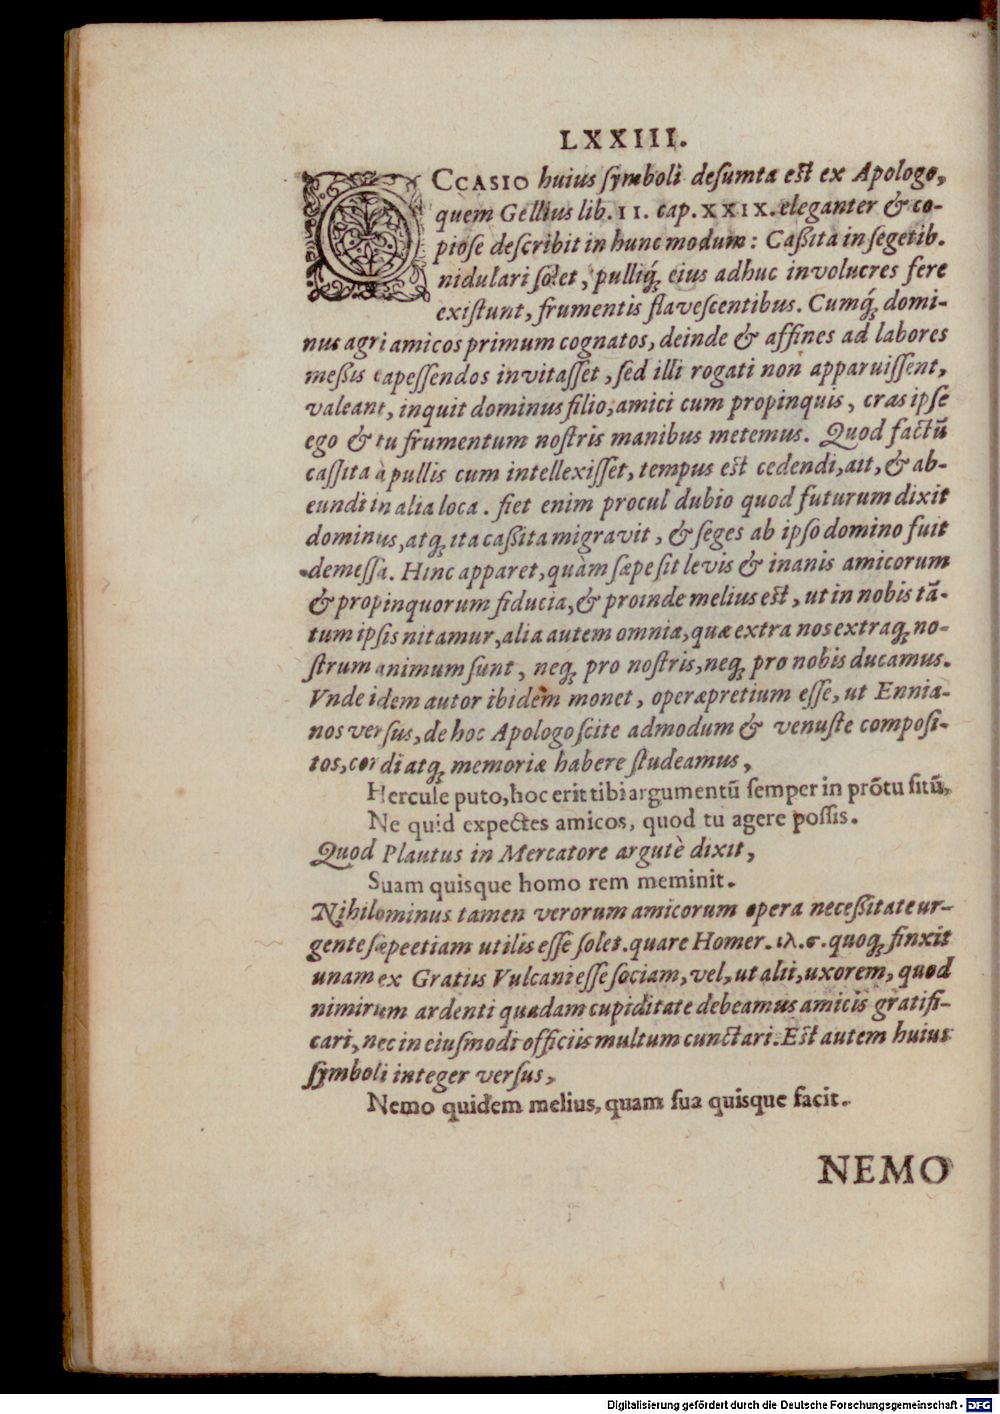 LXXIII.
OCCASIO huius symboli desumta est ex Apologo,
quem Gellius lib. II. cap. XXIX. eleganter & co-
piose describit in hunc modum: Cassita in segetib.
nidulari solet, pulliq́; eius adhuc involucres fere
existunt, frumentis flavescentibus. Cumq́; domi-
nus agri amicos primum cognatos, deinde & affines ad labores
messis capessendos invitasset, sed illi rogati non apparuissent,
valeant, inquit dominus filio, amici cum propinquis, cras ipse
ego & tu frumentum nostris manibus metemus. Quod factũ
cassita à pullis cum intellexisset, tempus est cedendi, ait, & ab-
eundi in alia loca. fiet enim procul dubio quod futurum dixit
dominus, atq; ita cassita migravit, & seges ab ipso domino fuit
demessa. Hinc apparet, quàm sæpe sit levis & inanis amicorum
& propinquorum fiducia, & proinde melius est, ut in nobis tā-
tum ipsis nitamur, alia autem omnia, quæ extra nos extraq; no-
strum animum sunt, neq; pro nostris, neq; pro nobis ducamus.
Vnde idem autor ibidem monet, operæpretium esse, ut Ennia-
nos versus, de hoc Apologo scite admodum & venuste composi-
tos, cordi atq; memoriæ habere studeamus,
Hercule puto, hoc erit tibi argumentũ semper in prõtu sitũ,
Ne quid expectes amicos, quod tu agere possis.
Quod Plautus in Mercatore argutè dixit,
Suam quisque homo rem meminit.
Nihilominus tamen verorum amicorum opera necessitate ur-
gente sæpe etiam utilis esse solet. quare Homer. ιλ. σ. quoq; finxit
unam ex Gratiis Vulcani esse sociam, vel, ut alii, uxorem, quod
nimirum ardenti quadam cupiditate debeamus amicis gratifi-
cari, nec in eiusmodi officiis multum cunctari. Est autem huius
symboli integer versus,
Nemo quidem melius, quam sua quisque facit.
NEMO
Digitalisierung gefördert durch die Deutsche Forschungsgemeinschaft - DFG